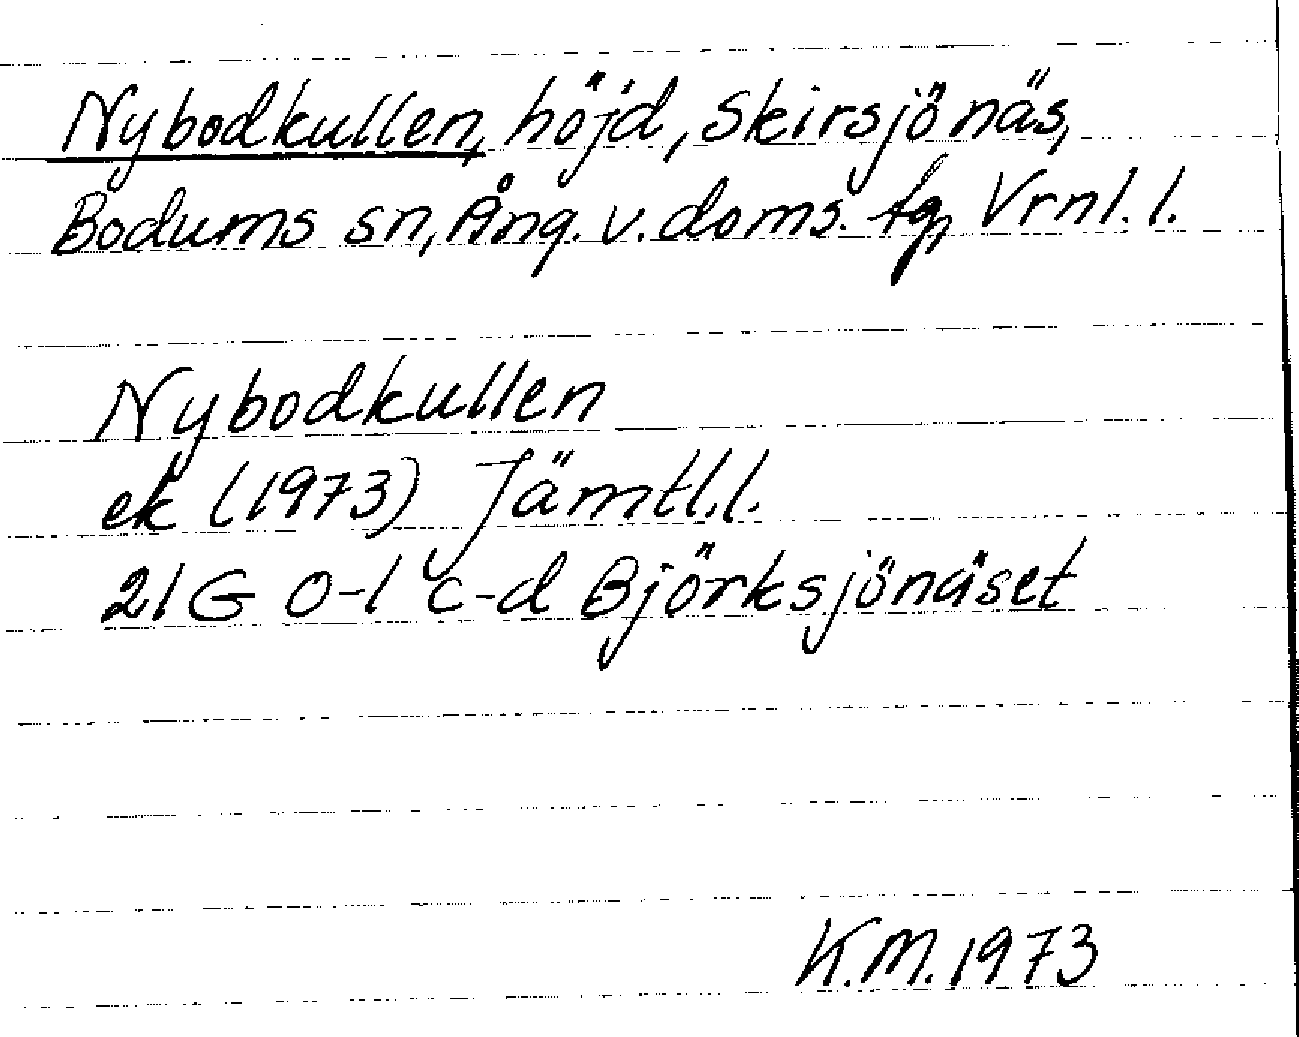 Nybodkullen, höjd, Skirsjönäs,
Bodums sn, Ång. v. doms. tg, Vrnl. l.
Nybodkullen
ek (1973) Jämtl. l.
21G 0-1 c-d Björksjönäset
K.M. 1973